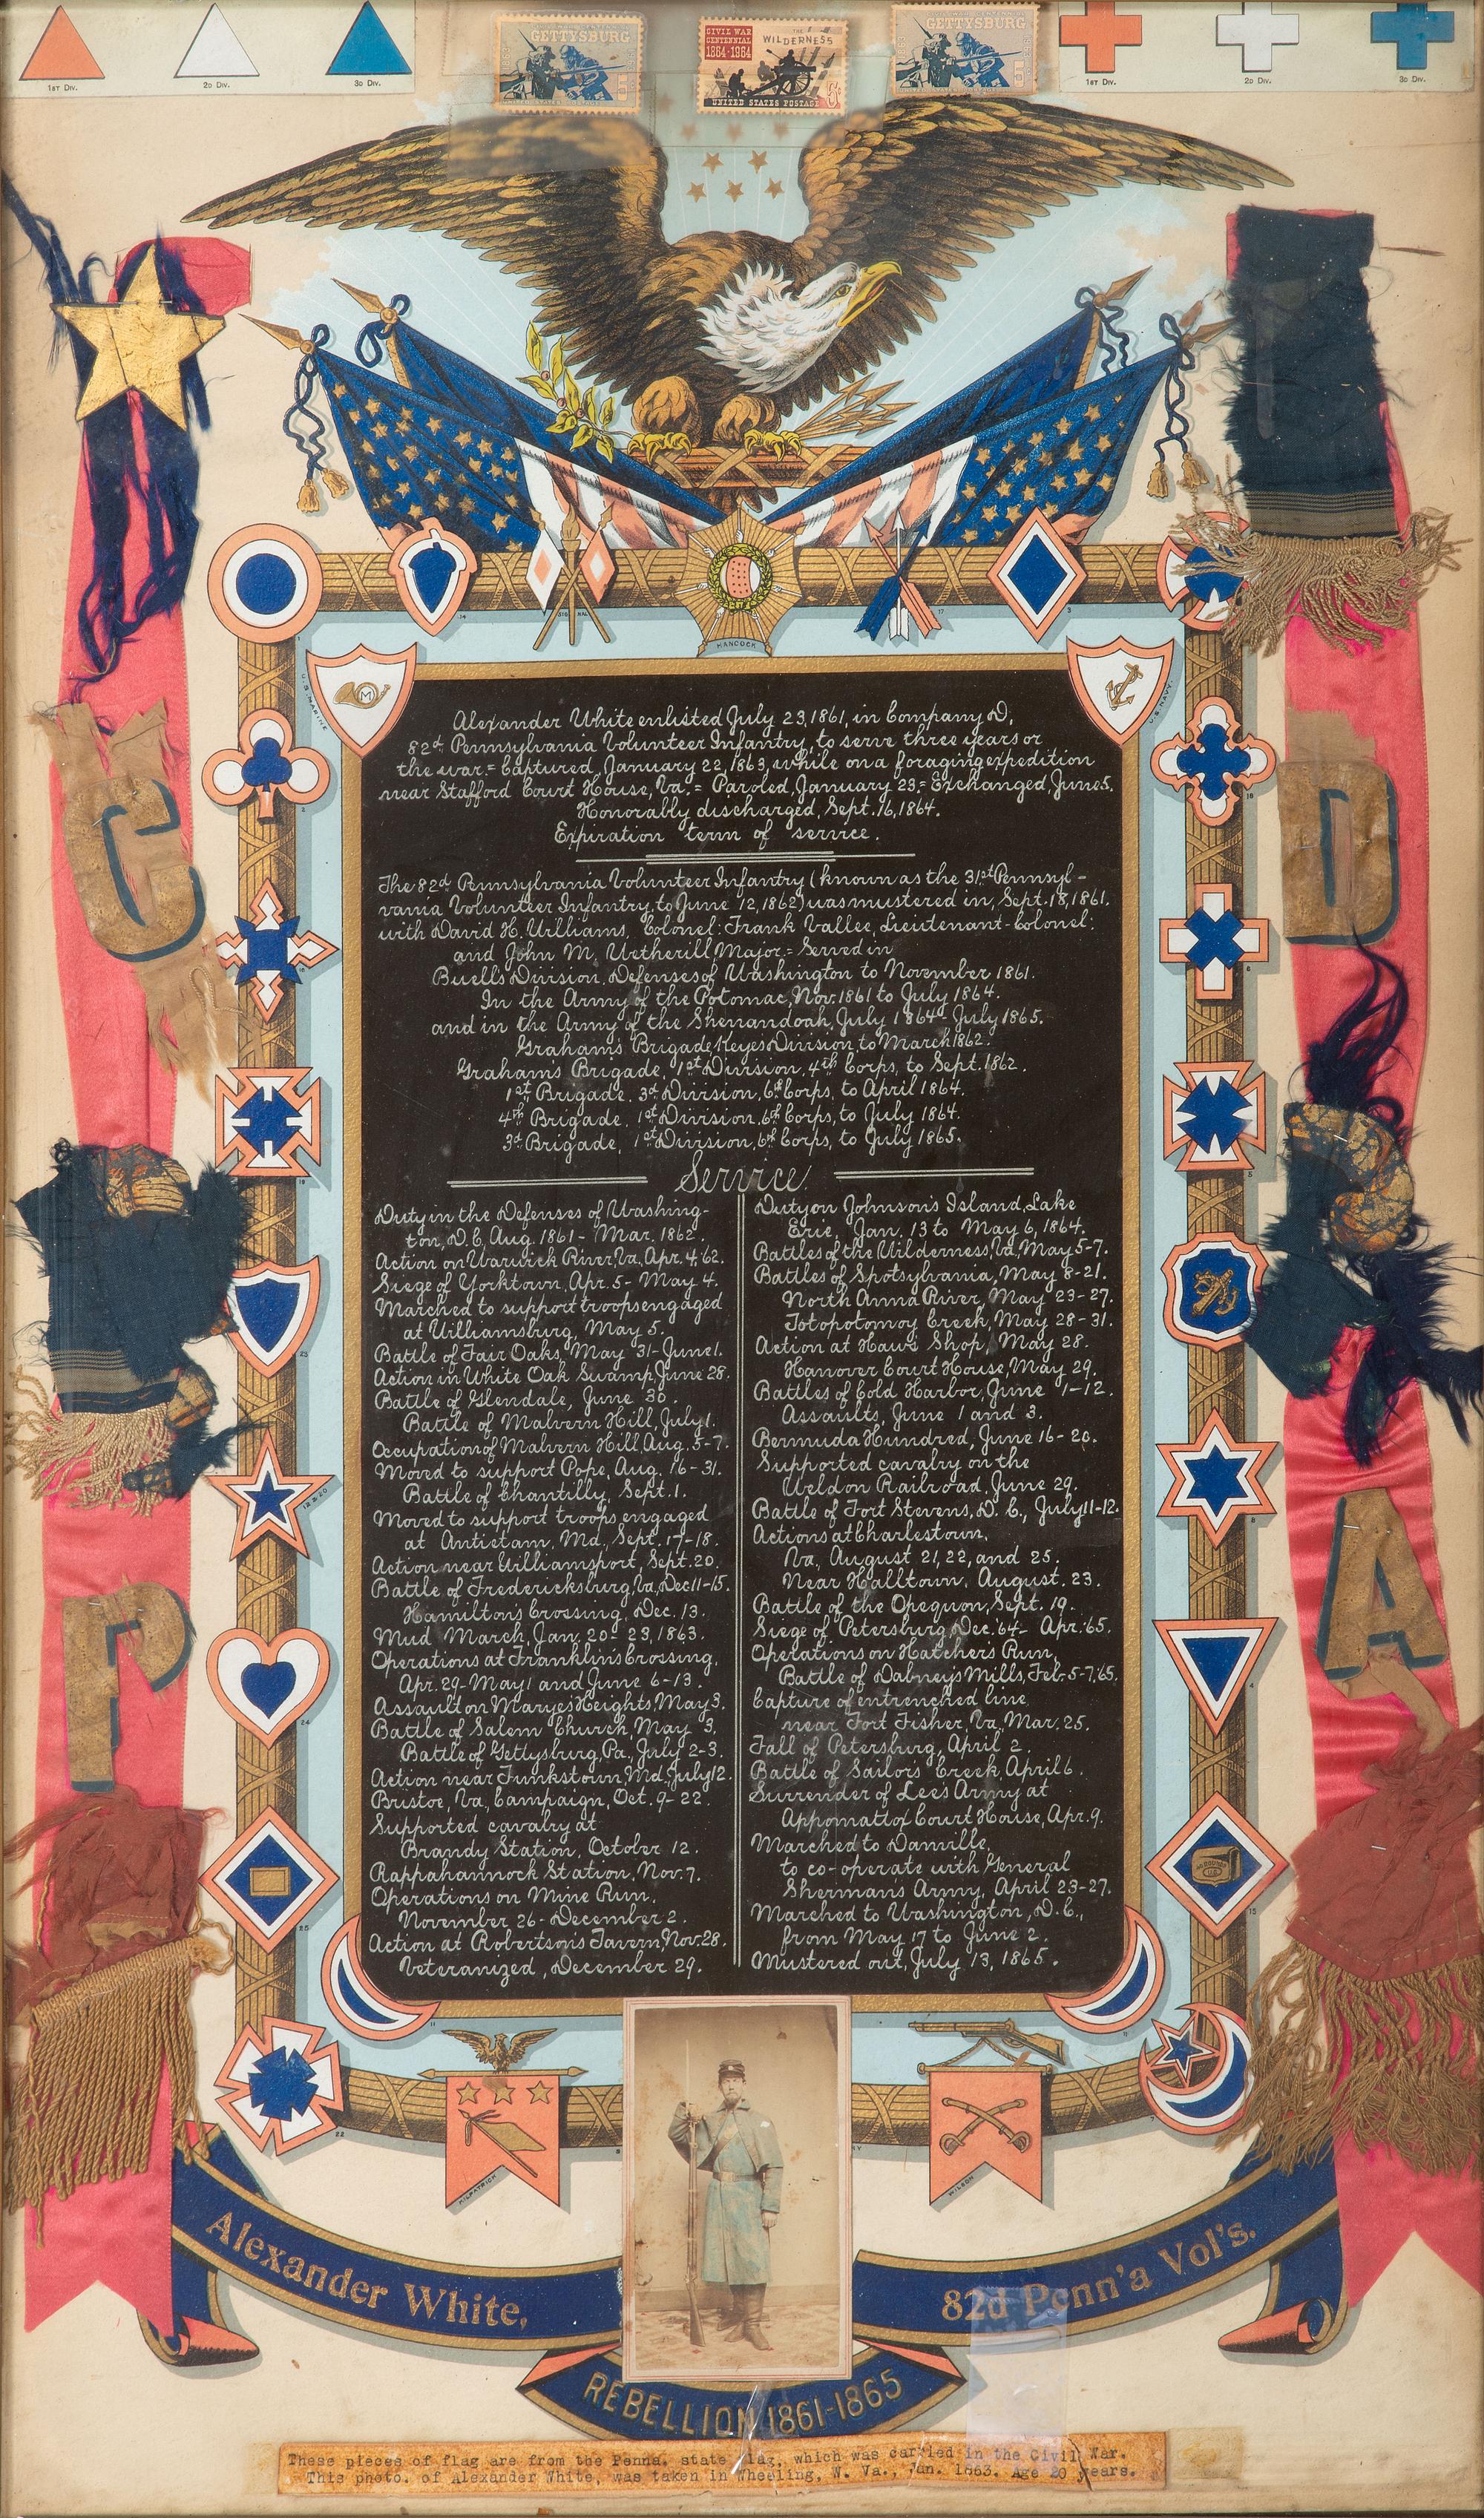 1ST DIV.
2D DIV.
3D DIV.
GETTYSBURG
CIVIL WAR
CENTENNIAL
1864-1964
THE
WILDERNESS
UNITED STATES POSTAGE
GETTYSBURG
1ST DIV.
2D DIV.
3D DIV.
HANCOCK
U.S. MARINE
U.S. NAVY
Alexander White enlisted July 23, 1861, in Company D,
82d Pennsylvania Volunteer Infantry, to serve three years or
the war = Captured January 22, 1863, while on a foraging expedition
near Stafford Court House, Va. = Paroled, January 23 = Exchanged, June 5.
Honorably discharged, Sept. 16, 1864.
Expiration term of service.
The 82d Pennsylvania Volunteer Infantry (known as the 31st Pennsyl-
vania Volunteer Infantry, to June 12, 1862) was mustered in, Sept. 18, 1861.
with David H. Williams, Colonel: Frank Vallee, Lieutenant-Colonel:
and John M. Wetherill, Major = Served in
Buell's Division, Defenses of Washington to November 1861.
In the Army of the Potomac, Nov. 1861 to July 1864.
and in the Army of the Shenandoah, July 1864 - July 1865.
Graham's Brigade, Keyes Division, to March 1862.
Graham's Brigade, 1st Division, 4th Corps, to Sept. 1862.
1st Brigade, 3d Division, 6th Corps, to April 1864.
4th Brigade, 1st Division, 6th Corps, to July 1864.
3d Brigade, 1st Division, 6th Corps, to July 1865.
Service
Duty in the Defenses of Washing-
ton, D.C. Aug. 1861 - Mar. 1862.
Action on Warwick River, Va, Apr. 4, '62.
Siege of Yorktown, Apr. 5 - May 4.
Marched to support troops engaged
at Williamsburg, May 5.
Battle of Fair Oaks, May 31 - June 1.
Action in White Oak Swamp, June 28.
Battle of Glendale, June 30.
Battle of Malvern Hill, July 1.
Occupation of Malvern Hill, Aug. 5-7.
Moved to support Pope, Aug. 16-31.
Battle of Chantilly, Sept. 1.
Moved to support troops engaged
at Antietam, Md, Sept. 17-18.
Action near Williamsport, Sept. 20.
Battle of Fredericksburg, Va, Dec 11-15.
Hamilton's Crossing, Dec. 13.
Mud March, Jan. 20 - 23, 1863.
Operations at Franklin's Crossing,
Apr. 29 - May 1 and June 6-13.
Assault on Maryes Heights, May 3.
Battle of Salem Church, May 3.
Battle of Gettysburg, Pa, July 2-3.
Action near Funkstown, Md, July 12.
Bristoe, Va, Campaign, Oct. 9-22.
Supported cavalry at
Brandy Station, October 12.
Rappahannock Station, Nov. 7.
Operations on Mine Run,
November 26 - December 2.
Action at Robertson's Tavern, Nov. 28.
Veteranized, December 29.
Duty on Johnson's Island, Lake
Erie, Jan. 13 to May 6, 1864.
Battles of the Wilderness, Va, May 5-7.
Battles of Spotsylvania, May 8-21.
North Anna River, May 23-27.
Totopotomoy Creek, May 28-31.
Action at Haw's Shop, May 28.
Hanover Court House, May 29.
Battles of Cold Harbor, June 1-12.
Assaults, June 1 and 3.
Bermuda Hundred, June 16-20.
Supported cavalry on the
Weldon Railroad, June 29.
Battle of Fort Stevens, D. C., July 11-12.
Actions at Charlestown,
Va, August 21, 22, and 25.
Near Halltown, August. 23.
Battle of the Opequon, Sept. 19.
Siege of Petersburg, Dec. '64 - Apr. '65.
Operations on Hatcher's Run,
Battle of Dabney's Mills, Feb. 5-7, '65.
Capture of entrenched line,
near Fort Fisher, Va, Mar. 25.
Fall of Petersburg, April 2.
Battle of Sailor's Creek, April 6.
Surrender of Lee's Army at
Appomattox Court House, Apr. 9.
Marched to Danville,
to co-operate with General
Sherman's Army, April 23-27.
Marched to Washington, D.C.,
from May 17 to June 2.
Mustered out, July 13, 1865.
C
D
P
A
KILPATRICK
WILSON
Alexander White,
82d Penn'a Vol's.
REBELLION 1861-1865
These pieces of flag are from the Penna. state flag, which was carried in the Civil War.
This photo. of Alexander White, was taken in Wheeling, W. Va., Jan. 1863. Age 20 years.